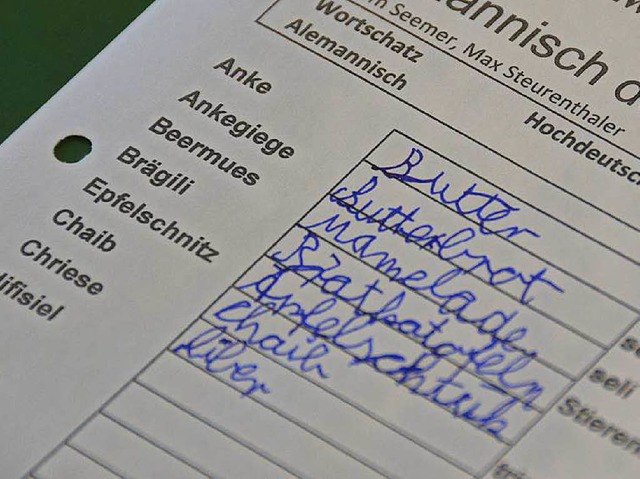 annisch d
Seemer, Max Steurenthaler
Wortschatz
Alemannisch
Hochdeutsc
Anke
Ankegiege
Beermues
Brägili
Epfelschnitz
Chaib
Chriese
ifisiel
Butter
Butterbrot
Mamelade
Bratkatofeln
Apfelschtük
chaib
liber
seli
Stieren